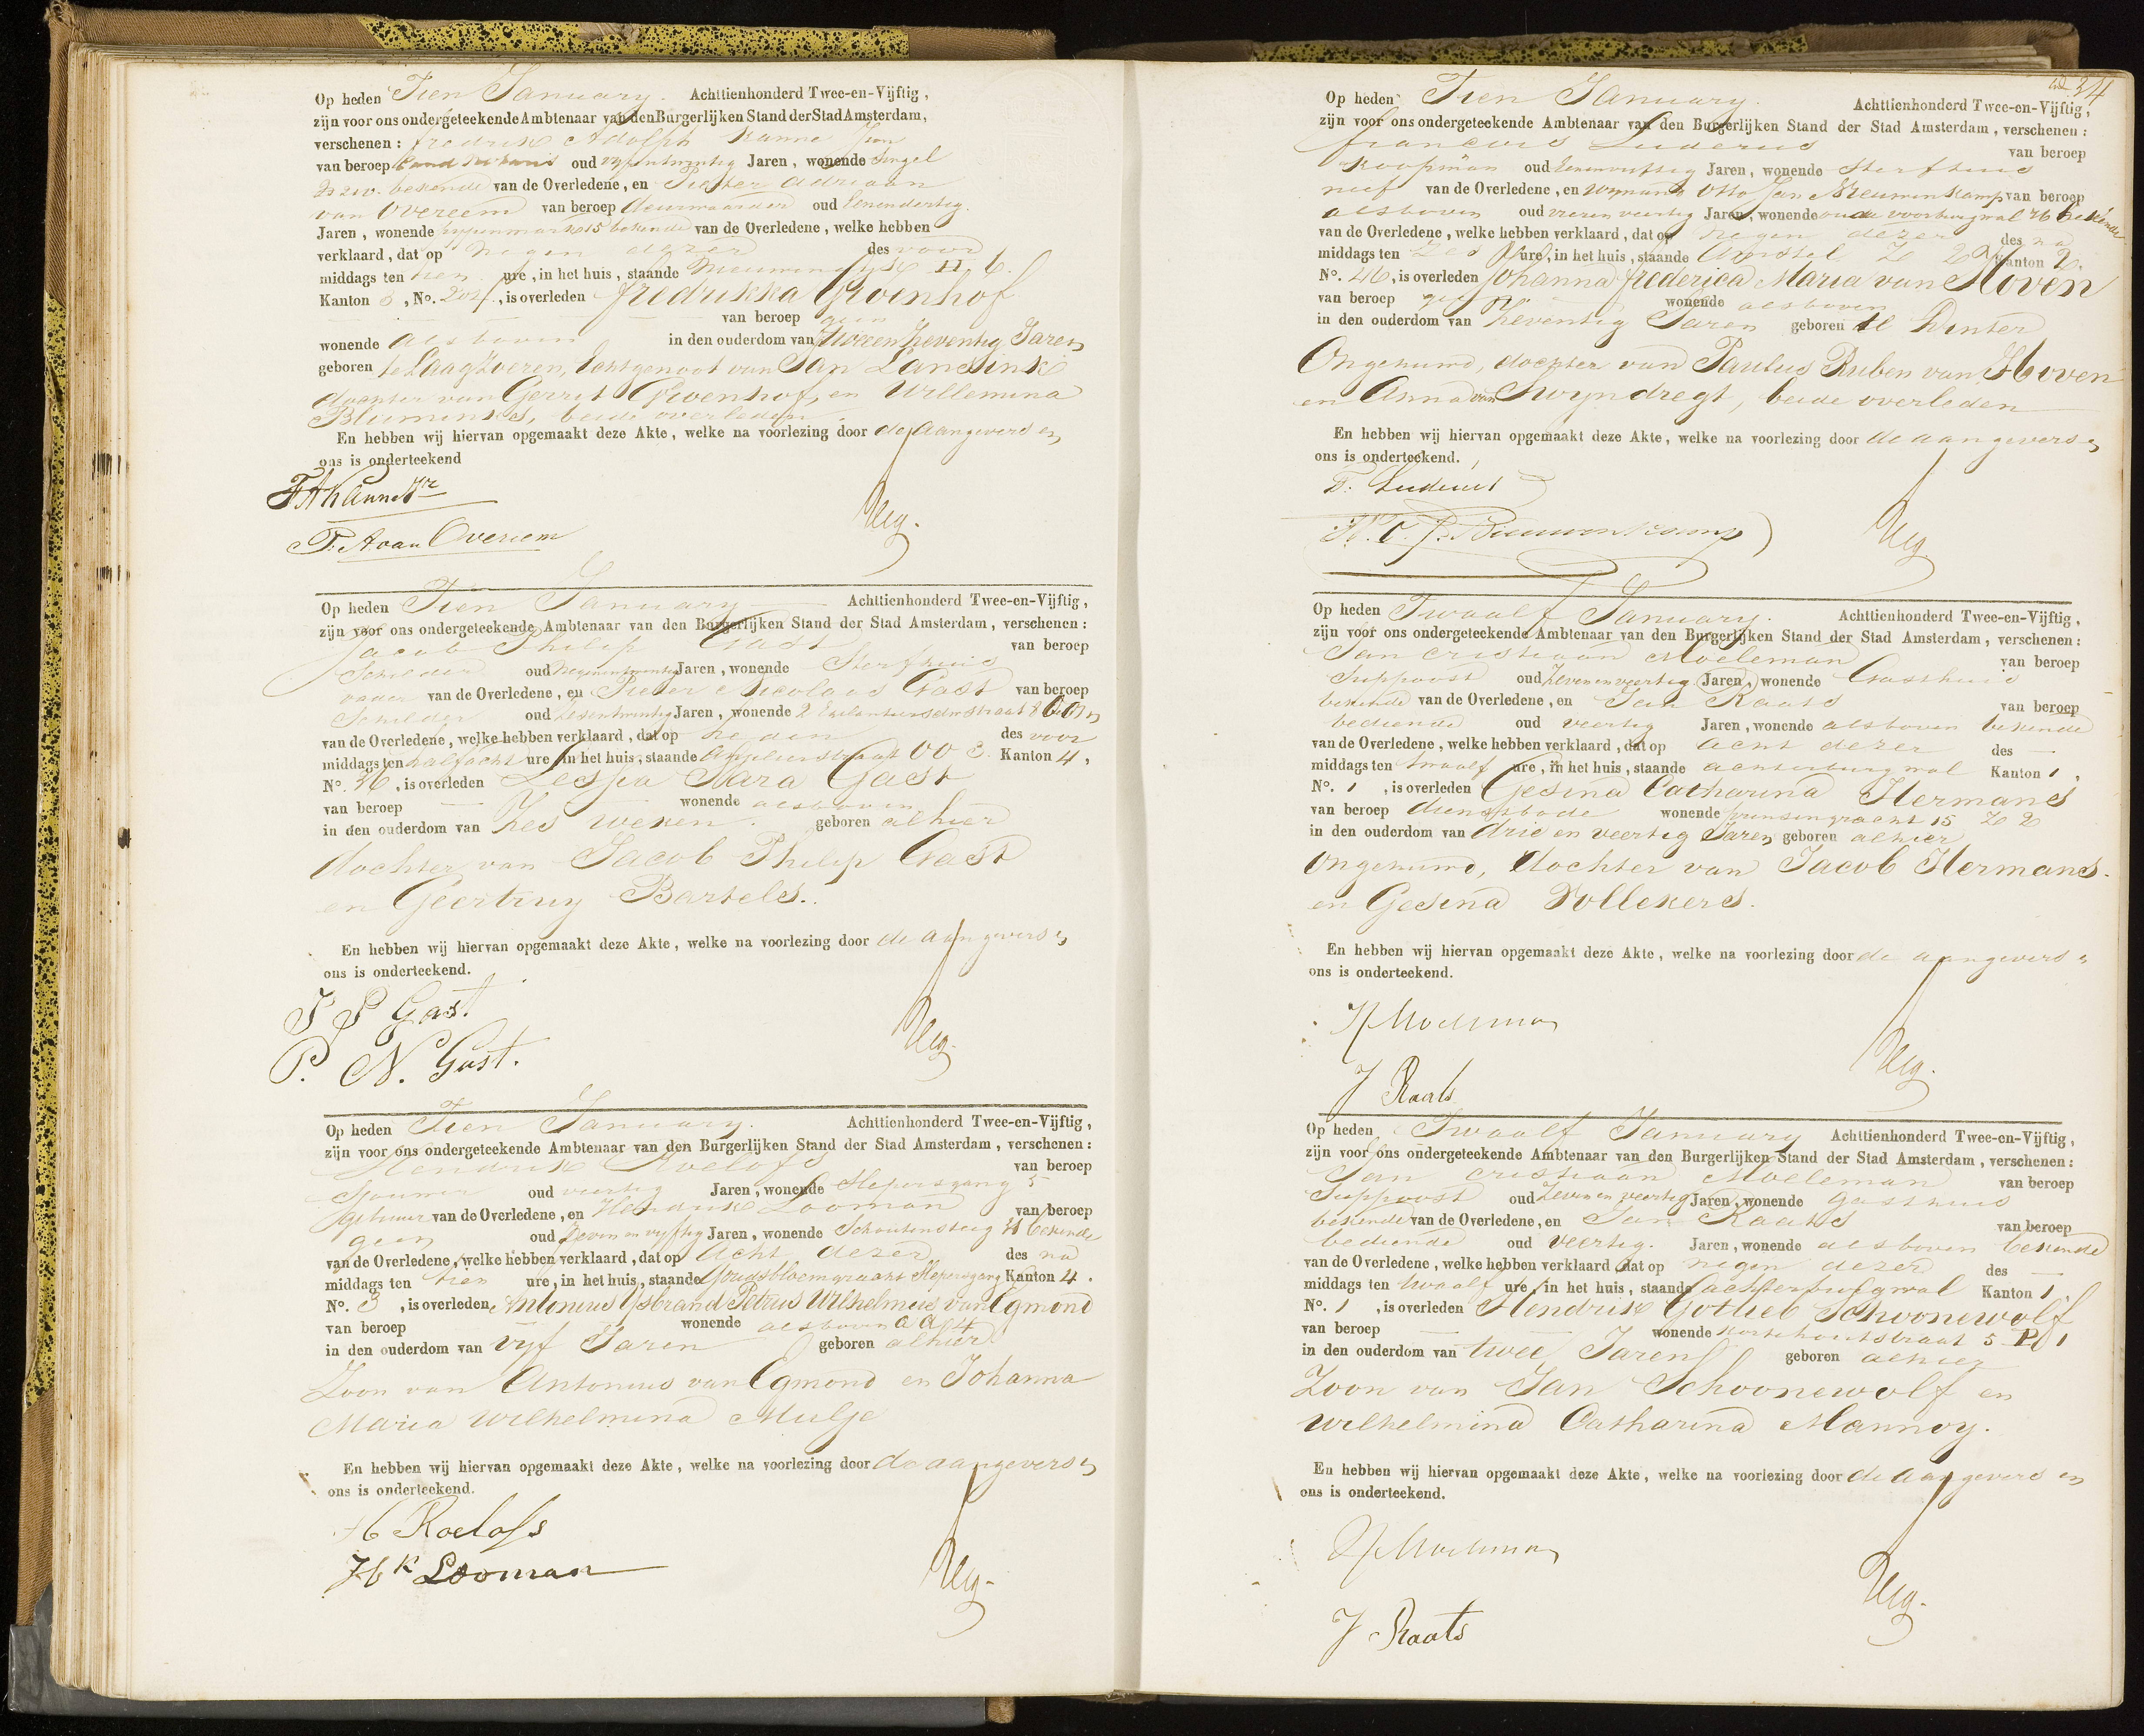 Op heden Tien January. Achttienhonderd Twee-en-Vijftig,
zijn voor ons ondergeteekende Ambtenaar van den Burgerlijken Stand der Stad Amsterdam,
verschenen: fredrik Adolph Kanne Jun
van beroep oud vyfentwintig Jaren, wonende Singel
bekende van de Overledene, en Pieter Adriaan
van Overeem van beroep deurwaarder oud Eenendertig
Jaren, wonende 15 bekende van de Overledene, welke hebben
verklaard, dat op negen dezer des voor
middags ten tien ure, in het huis, staande II 6.
Kanton 3, No. is overleden fredrikka Groenhof
van beroep geen
wonende alsboven in den ouderdom van tweeenzeventig Jaren
geboren te Laagzoeren, Echtgenoot van Jan Lansink
dochter van Gerrit Groenhof, en Willemina
Blumink, beide overleden
En hebben wij hiervan opgemaakt deze Akte, welke na voorlezing door de Aangevers en
ons is onderteekend
F A Kanne Jr
P. A van Overeem
Op heden Tien January Achttienhonderd Twee-en-Vijftig,
zijn voor ons ondergeteekende Ambtenaar van den Burgerlijken Stand der Stad Amsterdam, verschenen:
Jacob Philip Gast van beroep
Schilder oud Negenentwintig Jaren, wonende Sterfhuis
vader van de Overledene, en Pieter Nicolaas Gast van beroep
Schilder oud Zesentwintig Jaren, wonende 2
van de Overledene, welke hebben verklaard, dat op heden des voor
middags ten halfacht ure in het huis, staande Anjelierstraat OO 3. Kanton 4,
No. 36, is overleden Sara Gast
van beroep — wonende alsboven
in den ouderdom van Zes weken. geboren alhier
dochter van Jacob Philip Gast
en Geertruy Bartels.
En hebben wij hiervan opgemaakt deze Akte, welke na voorlezing door de aangevers en
ons is onderteekend.
J P Gast.
P. N. Gast.
Op heden Tien January. Achttienhonderd Twee-en-Vijftig,
zijn voor ons ondergeteekende Ambtenaar van den Burgerlijken Stand der Stad Amsterdam, verschenen:
Hendrik Roelofs van beroep
Sjouwer oud veertig Jaren, wonende Slepersgang 5
gebuur van de Overledene, en Hendrik Looman van beroep
geen oud Zeven en vyftig Jaren, wonende Schoutensteeg bekende
van de Overledene, welke hebben verklaard, dat op Acht dezer des na
middags ten tien ure, in het huis, staande Goudsbloemgracht Slepersgang Kanton 4.
No. 3, is overleden Antonius Ysbrand Petrus Wilhelmus van Egmond
van beroep wonende alsboven AA 4
in den ouderdom van vyf Jaren geboren alhier
Zoon van Antonius van Egmond en Johanna
Maria Wilhelmina Mulje
En hebben wij hiervan opgemaakt deze Akte, welke na voorlezing door de aangevers en
ons is onderteekend.
H Roelofs
Hk Looman
34
Op heden Tien January. Achttienhonderd Twee-en-Vijftig,
zijn voor ons ondergeteekende Ambtenaar van den Burgerlijken Stand der Stad Amsterdam, verschenen:
francois Luderus van beroep
Koopman oud Jaren, wonende Sterfhuis
neef van de Overledene, en Wynand Otto Jan Nieuwenkamp van beroep
alsboven oud vieren veertig Jaren, wonende oude voorburgwal 76 bekende
van de Overledene, welke hebben verklaard, dat op negen dezer des na
middags ten Zes ure, in het huis, staande Amstel Kanton 2.
No. 46, is overleden Johanna frederica Maria van Hoven
van beroep geen wonende alsboven
in den ouderdom van Zeventig Jaren geboren te Dinter
Ongehuwd, dochter van Paulus Ruben van Hoven
en Anna van Swyndregt, beide overleden
En hebben wij hiervan opgemaakt deze Akte, welke na voorlezing door de aangevers en
ons is onderteekend.
F. Luderus
W. O. J. Nieuwenkamp
Op heden Twaalf January. Achttienhonderd Twee-en-Vijftig,
zijn voor ons ondergeteekende Ambtenaar van den Burgerlijken Stand der Stad Amsterdam, verschenen:
Jan Cristiaan Moeleman van beroep
Suppoost oud Zevenenveertig Jaren, wonende Gasthuis
bekende van de Overledene, en Jan Raats van beroep
bediende oud veertig Jaren, wonende alsboven bekende
van de Overledene, welke hebben verklaard, dat op acht dezer des —
middags ten twaalf ure, in het huis, staande achterburgwal Kanton 1,
No. 1, is overleden Gesina Catharina Hermans
van beroep dienstbode wonende prinsengracht 15
in den ouderdom van drie en veertig Jaren geboren alhier
Ongehuwd, dochter van Jacob Hermans.
en Gesina Vollekers.
En hebben wij hiervan opgemaakt deze Akte, welke na voorlezing door de aangevers en
ons is onderteekend.
Moeleman
J Raats
Op heden Twaalf January Achttienhonderd Twee-en-Vijftig,
zijn voor ons ondergeteekende Ambtenaar van den Burgerlijken Stand der Stad Amsterdam, verschenen:
Jan Cristiaan Moeleman van beroep
Suppoost oud Zeven en veertig Jaren, wonende Gasthuis
bekende van de Overledene, en Jan Raats van beroep
bediende oud veertig. Jaren, wonende alsboven bekende
van de Overledene, welke hebben verklaard dat op negen dezer des —
middags ten twaalf ure in het huis, staande achterburgwal Kanton 1,
No. 1, is overleden Hendrik Gotlieb Schoonewolf
van beroep — wonende 5 P 1
in den ouderdom van twee Jaren geboren alhier
Zoon van Jan Schoonewolf en
Wilhelmina Catharina Mannoy.
En hebben wij hiervan opgemaakt deze Akte, welke na voorlezing door de Aangevers en
ons is onderteekend.
Moeleman
J Raats